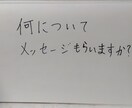 何について
メッセージもらいますか?